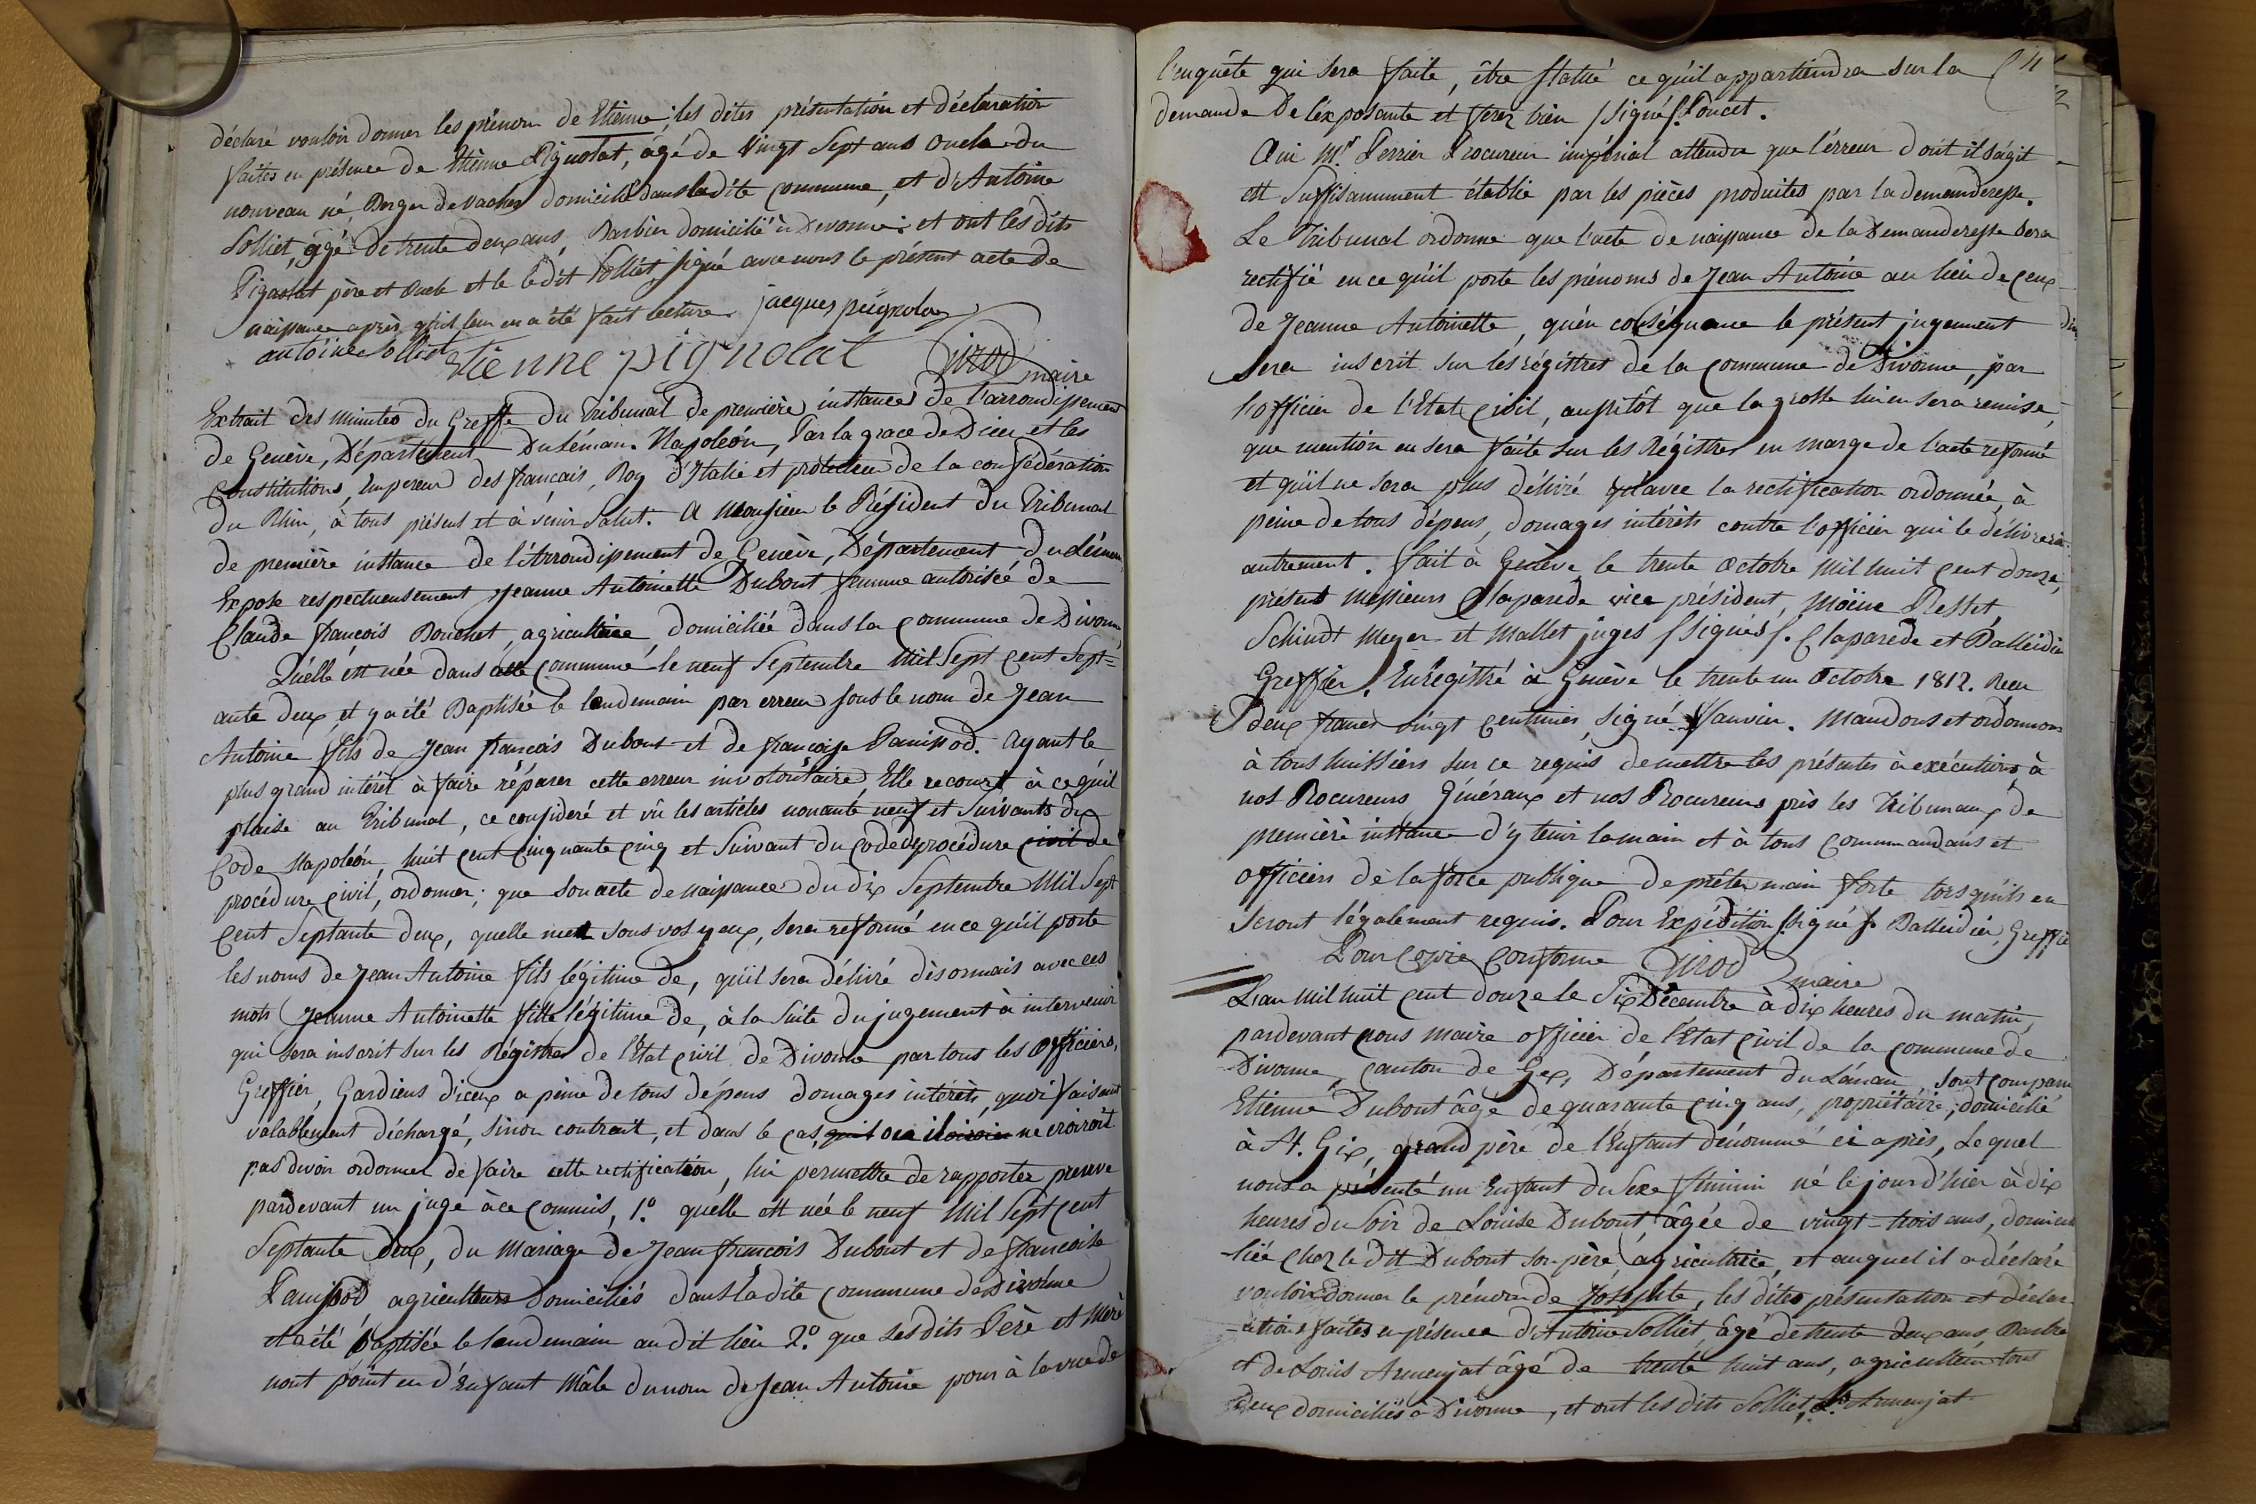 déclaré vouloir donner les prénom de Etienne, les dites présentation et déclaration
faites en présence de Etienne Pignolat, agé de vingt sept ans oncle du
nouveau né, Berger de vaches domicilié dans la dite commune, et d'Antoine
Solliet, agé de trente deux ans, Barbier domicilié à Divonne: et ont les dits
Pignolat père et oncle et le le dit Solliet signé avec nous le présent acte de
naissance après qu'il leur en a été fait lecture. jacques pignola
antoine Solliet Etienne pignolat Girod maire
Extrait des minutes du Greffe du Tribunal de première instance de l'arrondissement
de Genève, Département du Léman. Napoléon, Par la grace de Dieu et les
Constitutions, Empereur des français, Roy d'Italie et protecteur de la confédération
du Rhin, à tous présens et à venir Salut. A Monsieur le Président du Tribunal
de première instance de l'Arrondissement de Genève, Département du Léman,
Expose respectueusement Jeanne Antoinette Dubout femme autorisée de
Claude françois Bouchet, agricultrice domiciliée dans la commune de Divonne
Qu'elle est née dans cette commune le neuf Septembre Mil Sept cent Sept=
ante deux, et y a été Baptisée le lendemain par erreur sous le nom de Jean
Antoine fils de Jean françois Dubout et de françoise Panissod. Ayant le
plus grand intérêt à faire réparer cette erreur involontaire, Elle recourt à ce qu'il
plaise au Tribunal, ce considéré et vû les articles nonante neuf et suivants du
Code Napoléon, huit cent cinquante cinq et Suivant du Code de procédure civil de
procédure civil, ordonner; que son acte de naissance du dix Septembre Mil Sept
Cent Septante deux, quelle met sous vos yeux, sera reformé en ce qu'il porte
les noms de Jean Antoine fils légitime de, qu'il sera délivré désormais avec ces
mots Jeanne Antoinette fille légitime de, à la Suite du jugement à intervenir
qui sera inscrit sur les Régistres de l'Etat civil de Divonne par tous les officiers,
Greffier, Gardiens d'iceux a peine de tous dépens domages intérêts, quoi faisant
valablement déchargé, sinon contraint, et dans le cas, ne croiroit
pas devoir ordonner de faire cette rectification, lui permettre de rapporter preuve
pardevant un juge à ce commis, 1.º qu'elle est née le neuf Mil Sept cent
Septante deux, du Mariage de Jean françois Dubout et de françoise
Panissod, agriculteurs domiciliés dans la dite commune de Divonne
et a été baptisée le lendemain au dit lieu 2.º que ses dits Père et Mère
n'ont point eu d'Enfant Mâle du nom de Jean Antoine pour à la vue de
l'enquête qui sera faite, être statué ce qu'il appartiendra sur la
demande de l'exposante et ferez bien /signé/. Poncet.
Oui Mr. Perrier Procureur impérial attendu que l'érreur dont il s'agit
est suffisamment établie par les pièces produites par la demanderesse.
Le Tribunal ordonne que l'acte de naissance de la Demanderesse sera
rectifié en ce qu'il porte les prénoms de Jean Antoine au lieu de ceux
de Jeanne Antoinette, qu'en conséquence le présent jugement
sera inscrit sur les régistres de la commune de Divonne, par
l'officier de l'Etat civil, aussitôt que la grosse lui en sera remise,
que mention en sera faite sur les Régistres en marge de l'acte reformé
et qu'il ne sera plus délivré qu'avec la rectification ordonnée, à
peine de tous dépens, domages intérêts contre l'officier qui le délivrerait
autrement. fait à Genève le trente Octobre Mil huit cent douze,
présent Messieurs Claparede vice président, Möine Resset,
Schindt Meyer et Mallet juges /signés/. Claparède et Balleidier
Greffier. Enrégistré à Genève le trente un Octobre 1812. Reçu
deux francs vingt centimes, signé Vauvin. Mandons et ordonnons
à tous huissiers sur ce requis de mettre les présentes à exécution, à
nos Procureurs Généraux et nos Procureurs près les Tribunaux de
première instance d'y tenir la main et à tous Commandans et
officiers de la force publique de prêter main forte lors qu'ils en
seront légalement requis. Pour Expédition /signé/. Balleidier, Greffier
Pour Copie Conforme Girod maire
L'an Mil huit cent douze le Six Décembre à dix heures du matin,
pardevant nous maire officier de l'Etat civil de la commune de
Divonne, canton de Gex, Département du Léman, sont comparu
Etienne Dubout âgé de quarante cinq ans, propriétaire, domicilié
à St. Gix, grand père de l'Enfant dénommé ci après, Lequel
nous a présenté un Enfant du Sexe féminin né le jour d'hier à dix
heures du soir de Louise Dubout âgée de vingt-trois ans, domici
liée chez le dit Dubout son père, agricultrice, et auquel il a déclaré
vouloir donner le prénom de Josephte, les dites présentation et déclar
ations faites en présence d'Antoine Solliet, âgé de trente deux ans, Barbier
et de Louis Armenjat âgé de trente huit ans, agriculteur tous
deux domiciliés à Divonne, et ont les dits Solliet, Armenjat